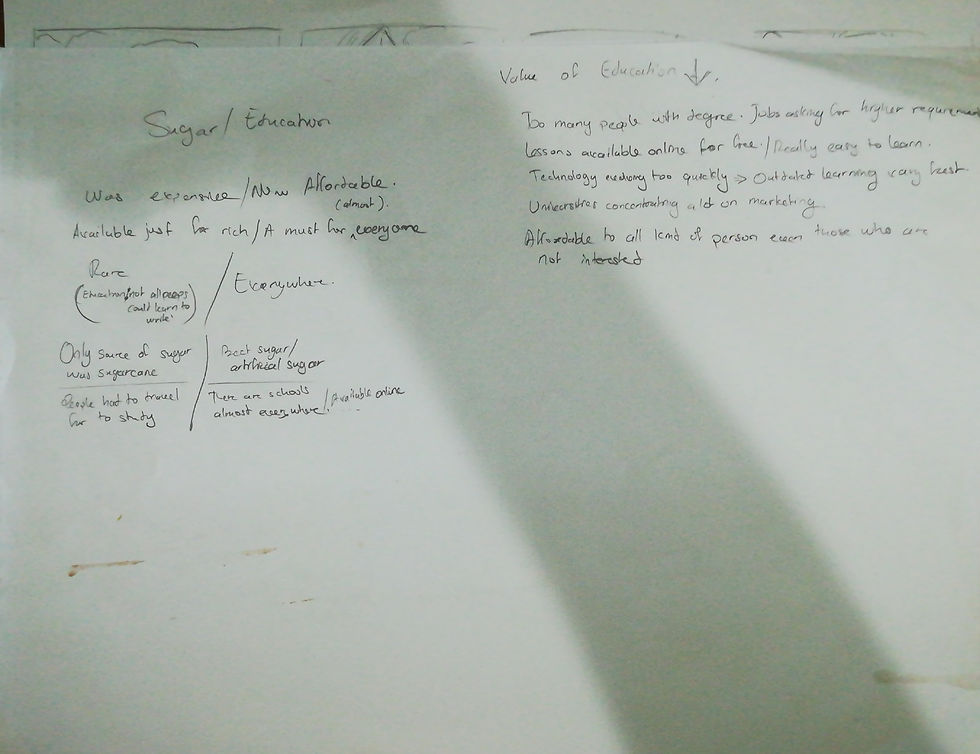 Sugar / Education
Was expensive / Now Affordable.
(almost).
Available just for rich / A must for everyone
Rare / Everywhere.
(Education, not all people
could learn to
write)
Only source of sugar / Beet sugar /
was sugarcane artificial sugar
People had to travel / There are schools / Available online
far to study almost everywhere.
Value of Education ↓.
Too many people with degree. Jobs asking for higher requiremen
Lessons available online for free. / Really easy to learn.
Technology evolving too quickly => Outdated learning very fast.
Universities concentrating a lot on marketing.
Affordable to all kind of person even those who are
not interested